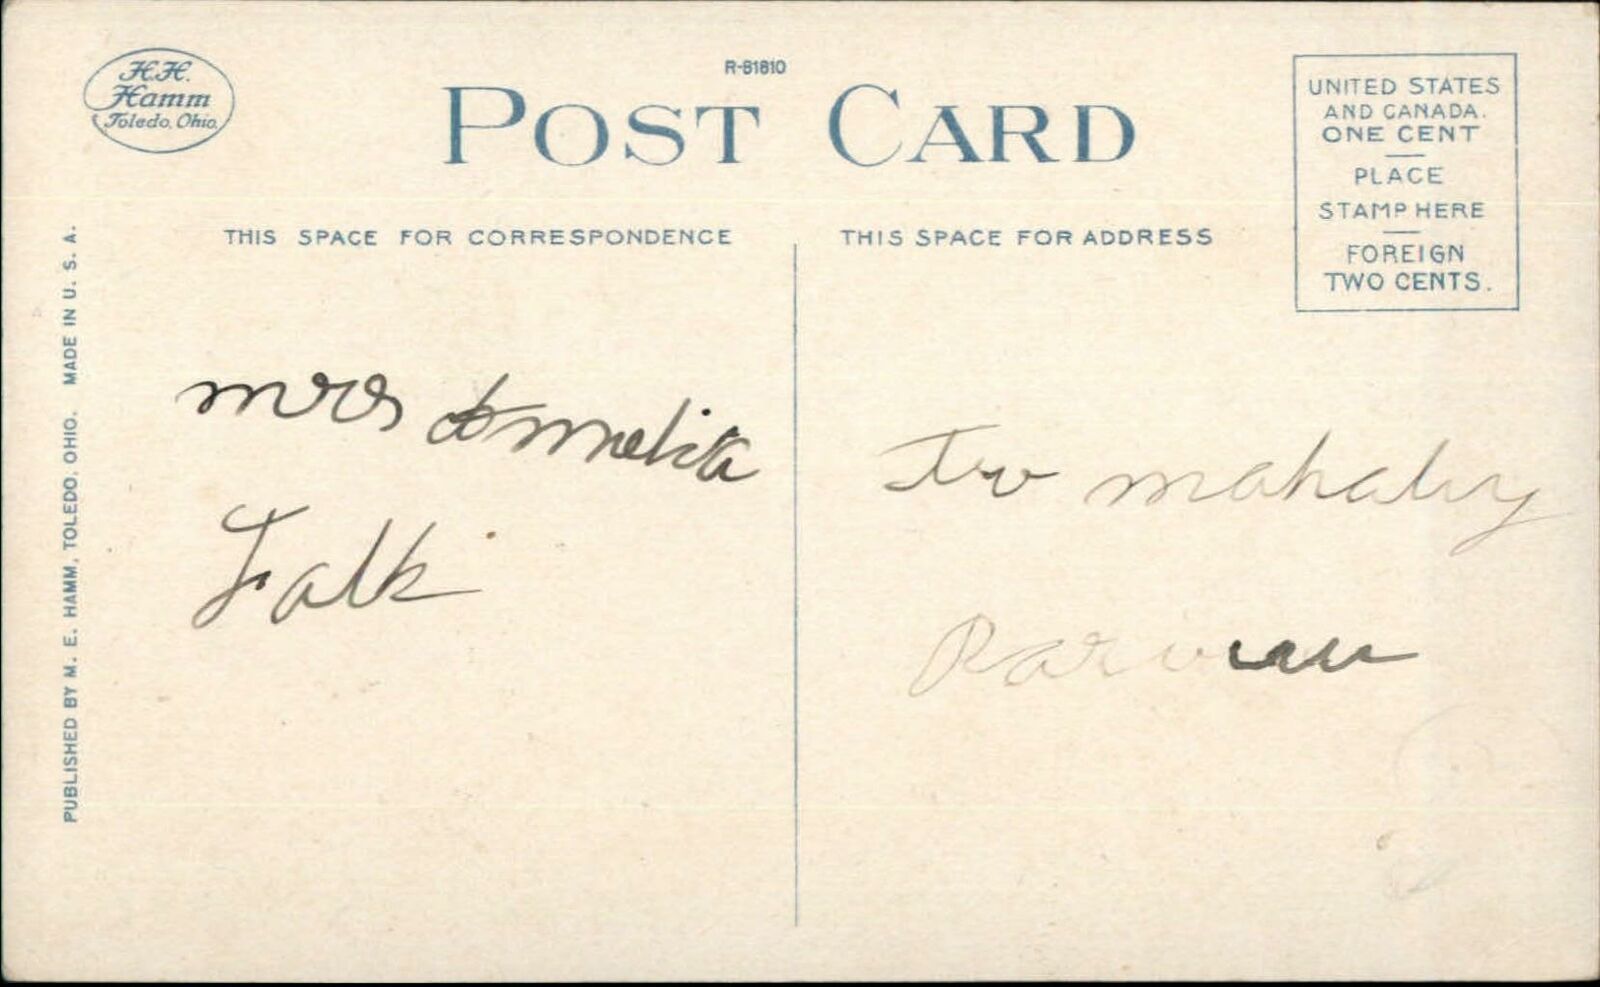 H.H.
Hamm
Toledo, Ohio.
R-81810
POST CARD
UNITED STATES
AND CANADA.
ONE CENT
PLACE
STAMP HERE
FOREIGN
TWO CENTS.
THIS SPACE FOR CORRESPONDENCE
THIS SPACE FOR ADDRESS
PUBLISHED BY M. E. HAMM, TOLEDO, OHIO. MADE IN U. S. A.
mrs
Falk